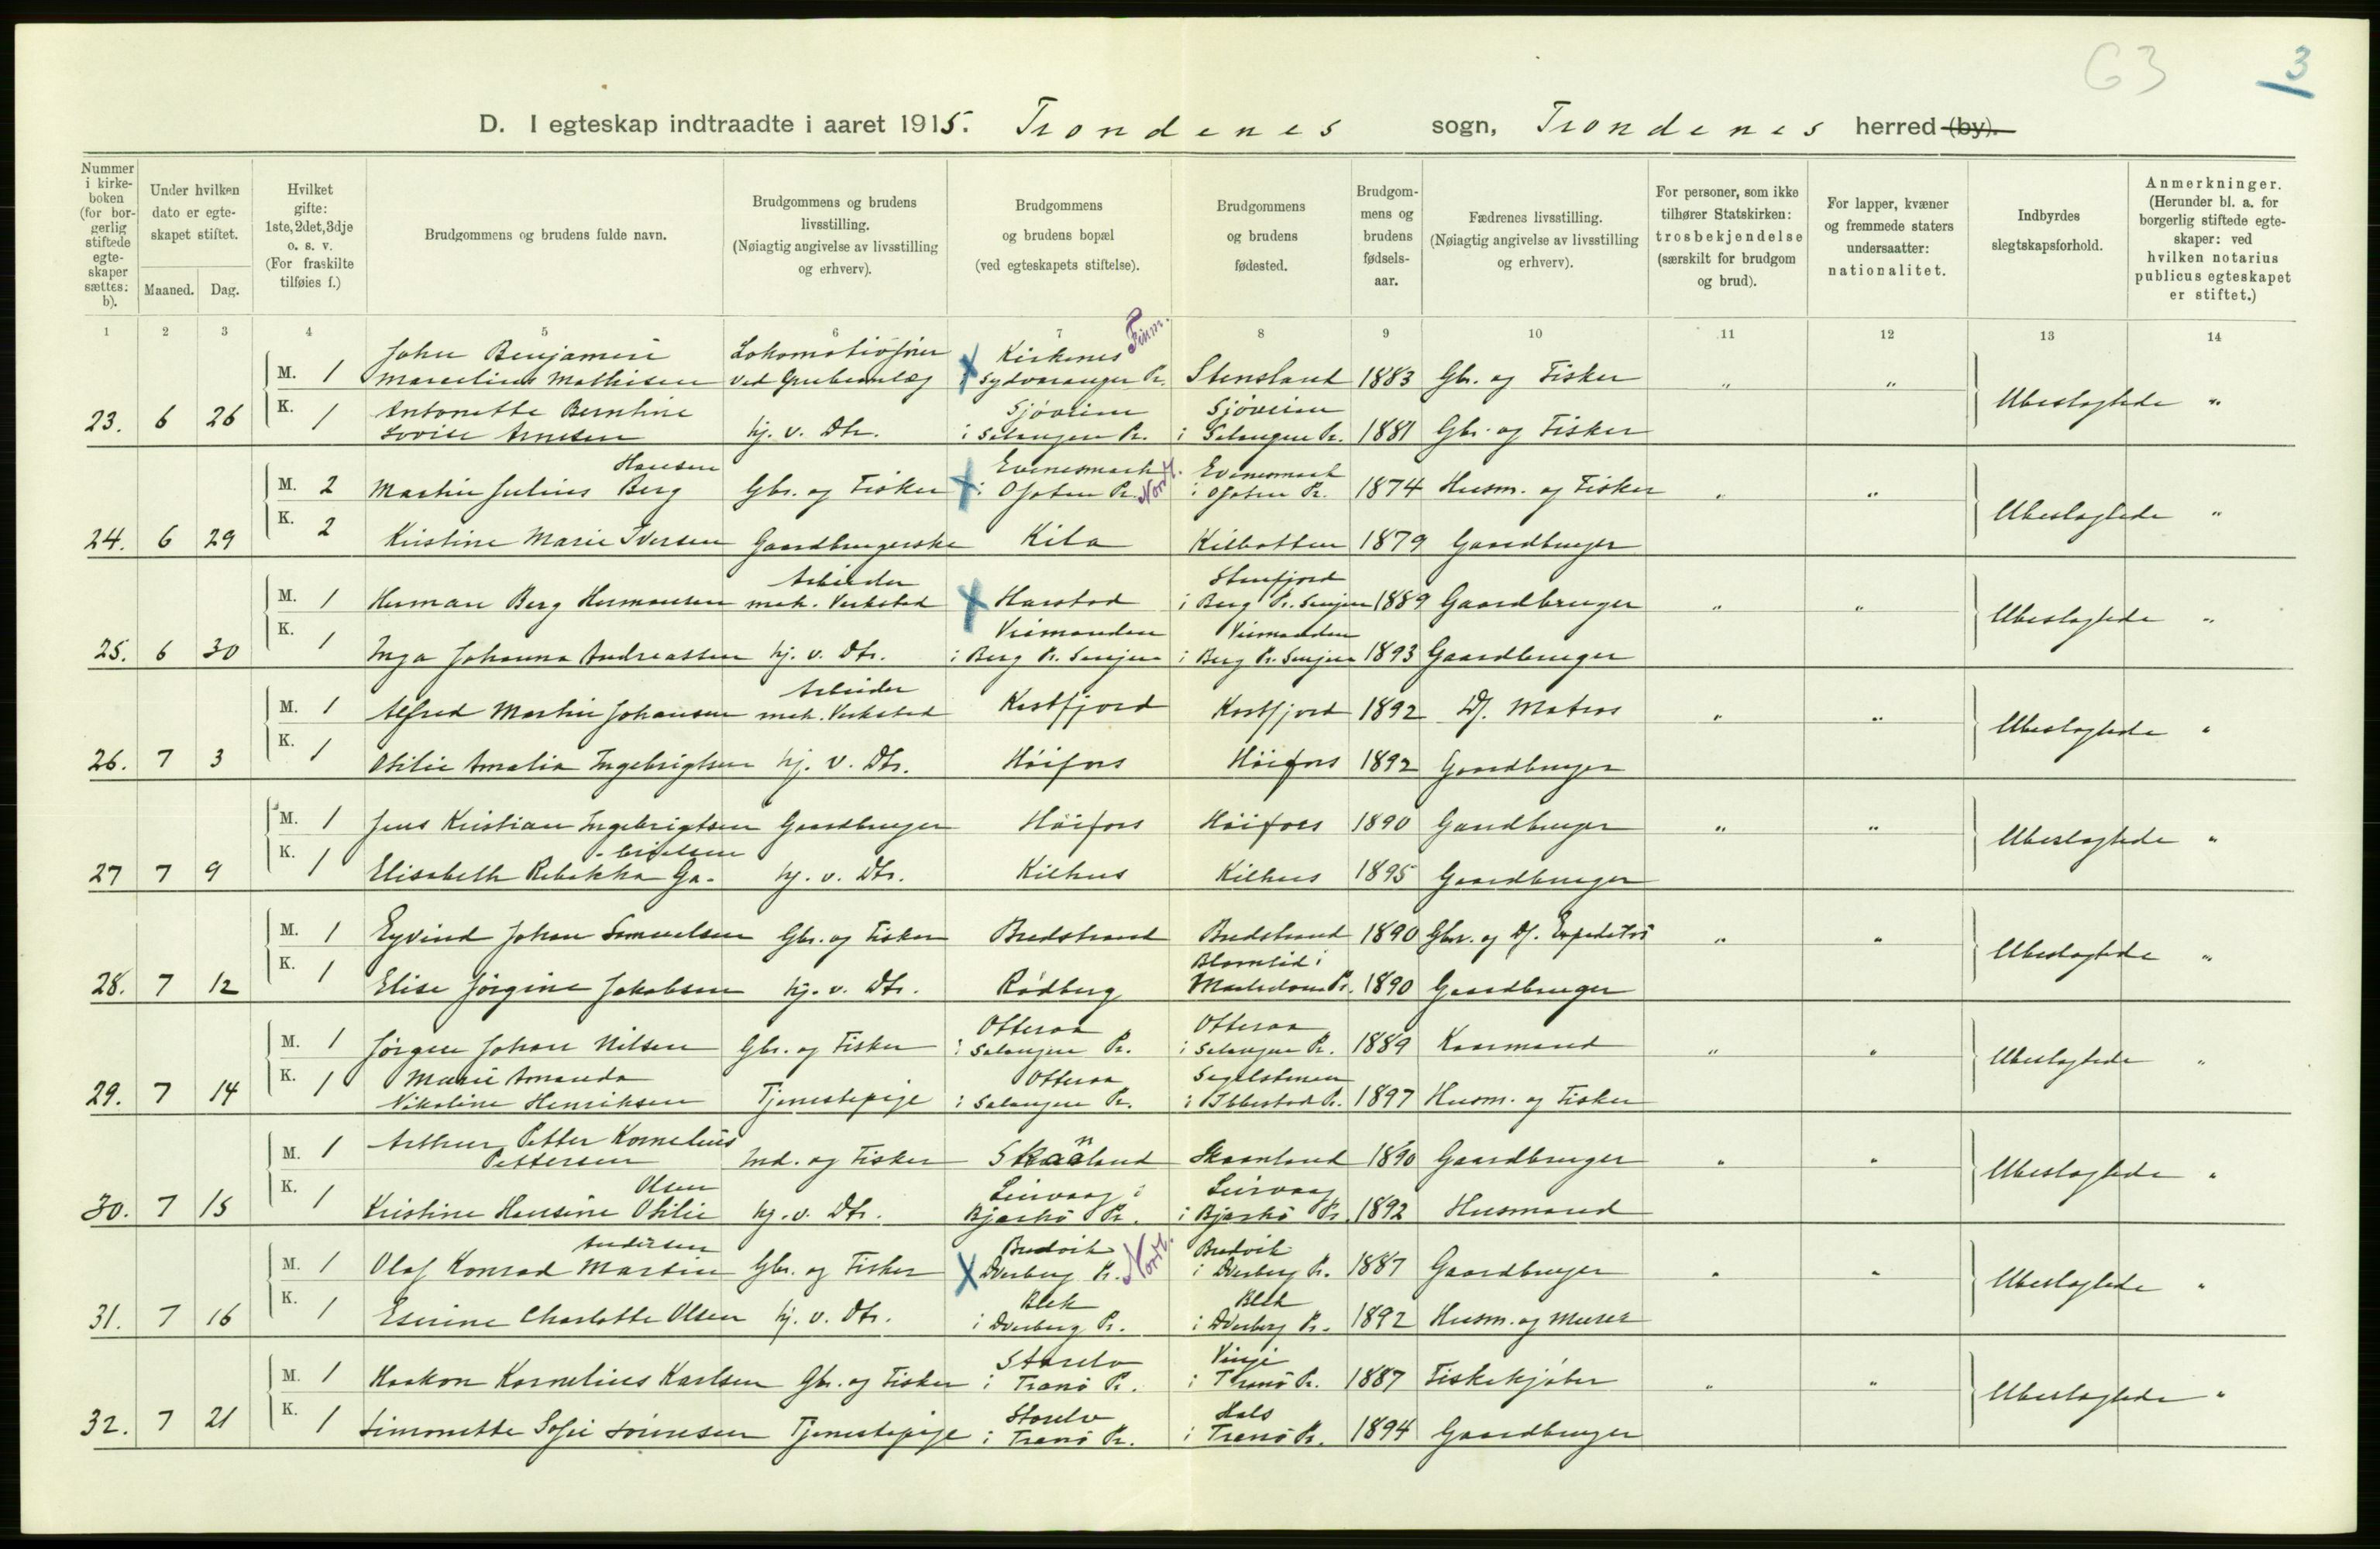 63
3
D. I egteskap indtraadte i aaret 1915. Trondenes sogn, Trondenes herred (by).
Nummer i kirkeboken (for borgerlig stiftede egteskaper sættes: b).
Under hvilken dato er egteskapet stiftet.
Maaned. Dag.
Hvilket gifte: 1ste, 2det, 3dje o. s. v. (For fraskilte tilføies f.)
Brudgommens og brudens fulde navn.
Brudgommens og brudens livsstilling. (Nøiagtig angivelse av livsstilling og erhverv).
Brudgommens og brudens bopæl (ved egteskapets stiftelse).
Brudgommens og brudens fødested.
Brudgommens og brudens fødselsaar.
Fædrenes livsstilling. (Nøiagtig angivelse av livsstilling og erhverv).
For personer, som ikke tilhører Statskirken: trosbekjendelse (særskilt for brudgom og brud).
For lapper, kvæner og fremmede staters undersaatter: nationalitet.
Indbyrdes slegtskapsforhold.
Anmerkninger. (Herunder bl. a. for borgerlig stiftede egteskaper: ved hvilken notarius publicus egteskapet er stiftet.)
1 2 3 4 5 6 7 8 9 10 11 12 13 14
M. 1 John Benjamin Marcelius Mathisen Lokomotivfører ved Grubeanlæg Kirkenes i Sydvaranger Pr. Finm. Stensland 1883 Gbr. og Fisker " " Ubeslagtede "
23. 6 26 K. 1 Antonette Berntine Lovise Arnesen hj. v. Dtr. Sjøveien i Salangen Pr. Sjøveien i Salangen Pr. 1881 Gbr. og Fisker
M. 2 Martin Julius Berg Hansen Gbr. og Fisker Evenesmark i Ofoten Pr. Nordl. Evenesmark i Ofoten Pr. 1874 Husm. og Fisker " " Ubeslagtede "
24. 6 29 K. 2 Kristine Marie Iversen Gaardbrugerske Kila Kilbotten 1879 Gaardbruger
M. 1 Herman Berg Hermansen Arbeider mek. Verksted Harstad Stenfjord i Berg Pr. Senjen 1889 Gaardbruger " " Ubeslagtede "
25. 6 30 K. 1 Inga Johanna Andreassen hj. v. Dtr. Veimanden i Berg Pr. Senjen Veimanden i Berg Pr. Senjen 1893 Gaardbruger
M. 1 Alfred Martin Johansen Arbeider mek. Verksted Kastfjord Kastfjord 1892 Df. Matros " " Ubeslagtede "
26. 7 3 K. 1 Otilie Amalia Ingebrigtsen hj. v. Dtr. Höifors Höifors 1892 Gaardbruger
M. 1 Jens Kristian Ingebrigtsen Gaardbruger Höifors Höifors 1890 Gaardbruger " " Ubeslagtede "
27 7 9 K. 1 Elisabeth Rebekka Ga-brielsen hj. v. Dtr. Kilhus Kilhus 1895 Gaardbruger
M. 1 Eyvind Johan Samuelsen Gbr. og Fisker Bredstrand Bredstrand 1890 Gbr. og Df. Expeditör " " Ubeslagtede "
28. 7 12 K. 1 Elise Jörgine Jakobsen hj. v. Dtr. Rödberg Blomlid i Pr. 1890 Gaardbruger
M. 1 Jörgen Johan Nilsen Gbr. og Fisker Otteraa i Salangen Pr. Otteraa i Salangen Pr. 1889 Kaarmand " " Ubeslagtede "
29. 7 14 K. 1 Marie Amanda Nikoline Henriksen Tjenestepige Otteraa i Salangen Pr. Segelstenen i Ibbestad Pr. 1897 Husm. og Fisker
M. 1 Arthur Petter Kornelius Pettersen Ind. og Fisker Skaanland Skaanland 1890 Gaardbruger " " Ubeslagtede "
30. 7 15 K. 1 Kristine Hansine Otilie Olsen hj. v. Dtr. Leirvaag i Bjarkö Pr. Leirvaag i Bjarkö Pr. 1892 Husmand
M. 1 Olaf Konrad Martin Andersen Gbr. og Fisker Bredvik Dverberg Pr. Nordl. Bredvik i Dverberg Pr. 1887 Gaardbruger " " Ubeslagtede "
31. 7 16 K. 1 Eserine Charlotte Olsen hj. v. Dtr. Blek i Dverberg Pr. Blek i Dverberg Pr. 1892 Husm. og Murer
M. 1 Haakon Kornelius Karlsen Gbr. og Fisker Storelv i Tranö Pr. Vinje i Tranö Pr. 1887 Fiskekjöber " " Ubeslagtede "
32. 7 21 K. 1 Simonette Sofie Sörensen Tjenestepige Storelv i Tranö Pr. Hals i Tranö Pr. 1894 Gaardbruger